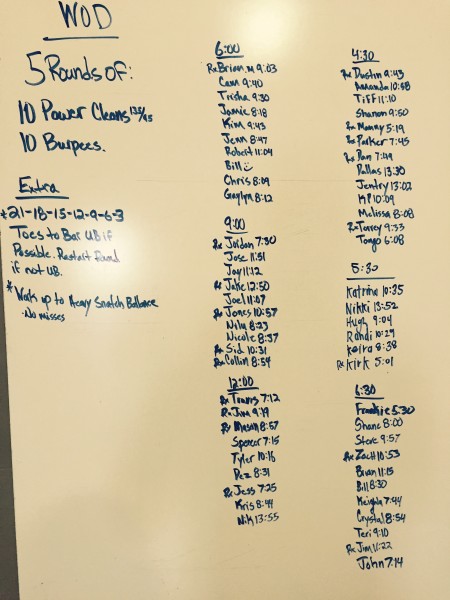 WOD
5 Rounds of:
10 Power Cleans 135/95
10 Burpees.
Extra
*21-18-15-12-9-6-3
Toes to Bar UB if
Possible. Restart Round
if not UB.
* Work up to Heavy Snatch Ballance
-No misses
6:00
Rx Brian M 9:03
Cam 9:40
Trisha 9:30
Jamie 8:18
Kim 9:43
Jenn 8:47
Robert 11:04
Bill
Chris 8:09
Gaylyn 8:12
9:00
Rx Jordan 7:30
Jose 11:51
Jay 11:12
Rx Jake 12:50
Joel 11:07
Rx Jones 10:57
Nila 8:23
Nicole 8:37
Rx Sid 10:31
Rx Collin 8:54
12:00
Rx Travis 7:12
Rx Jim 9:19
Rx Mason 8:57
Spencer 7:15
Tyler 10:16
Pez 8:31
Rx Jess 7:25
Kris 8:44
Nik 13:55
4:30
Rx Dustin 9:43
Amanda 10:58
Tiff 11:10
Shanon 9:50
Rx Manny 5:19
Rx Parker 7:45
Rx Pan 7:49
Dallas 13:30
Jentry 13:02
KP 10:09
Melissa 8:08
Rx Torrey 9:33
Tongo 6:08
5:30
Katrina 10:35
Nikki 13:52
Hugo 9:04
Randi 10:29
Keira 8:38
Rx Kirk 5:01
6:30
Frankie 5:30
Shane 8:00
Steve 9:57
Rx Zach 10:53
Brian 11:15
Bill 8:30
Keighla 7:44
Crystal 8:54
Teri 9:10
Rx Jim 11:22
John 7:14